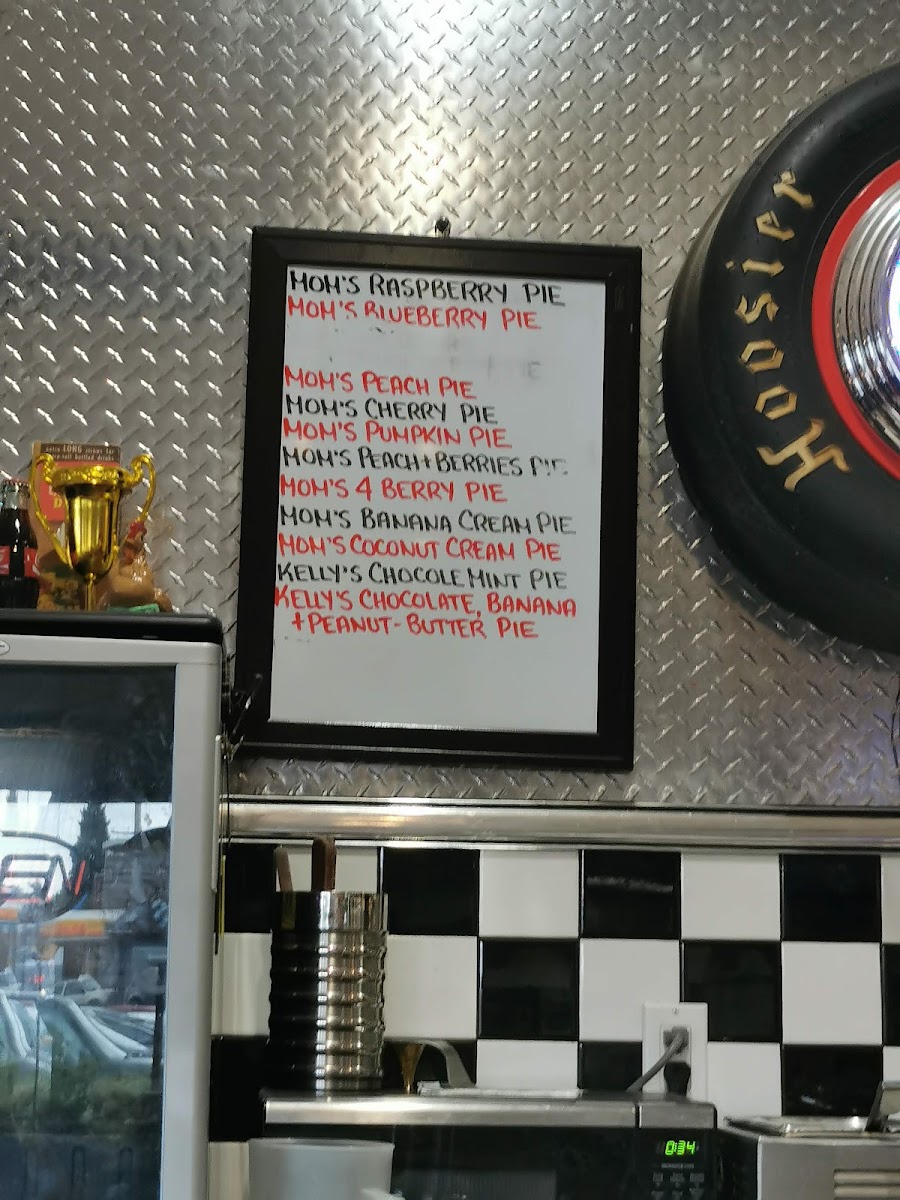 MOM'S RASPBERRY PIE
MOM'S BLUEBERRY PIE
MOM'S PEACH PIE
MOM'S CHERRY PIE
MOM'S PUMPKIN PIE
MOM'S PEACH+BERRIES PIE
MOM'S 4 BERRY PIE
MOM'S BANANA CREAM PIE
MOM'S COCONUT CREAM PIE
KELLY'S CHOCOLE MINT PIE
KELLY'S CHOCOLATE, BANANA
+PEANUT-BUTTER PIE
Hoosier
LONG
0:34